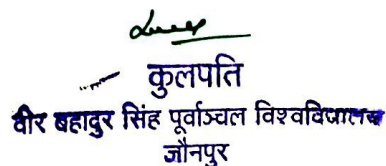 कुलपति
वीर बहादुर सिंह पूर्वाञ्चल विश्वविद्यालय
जौनपुर